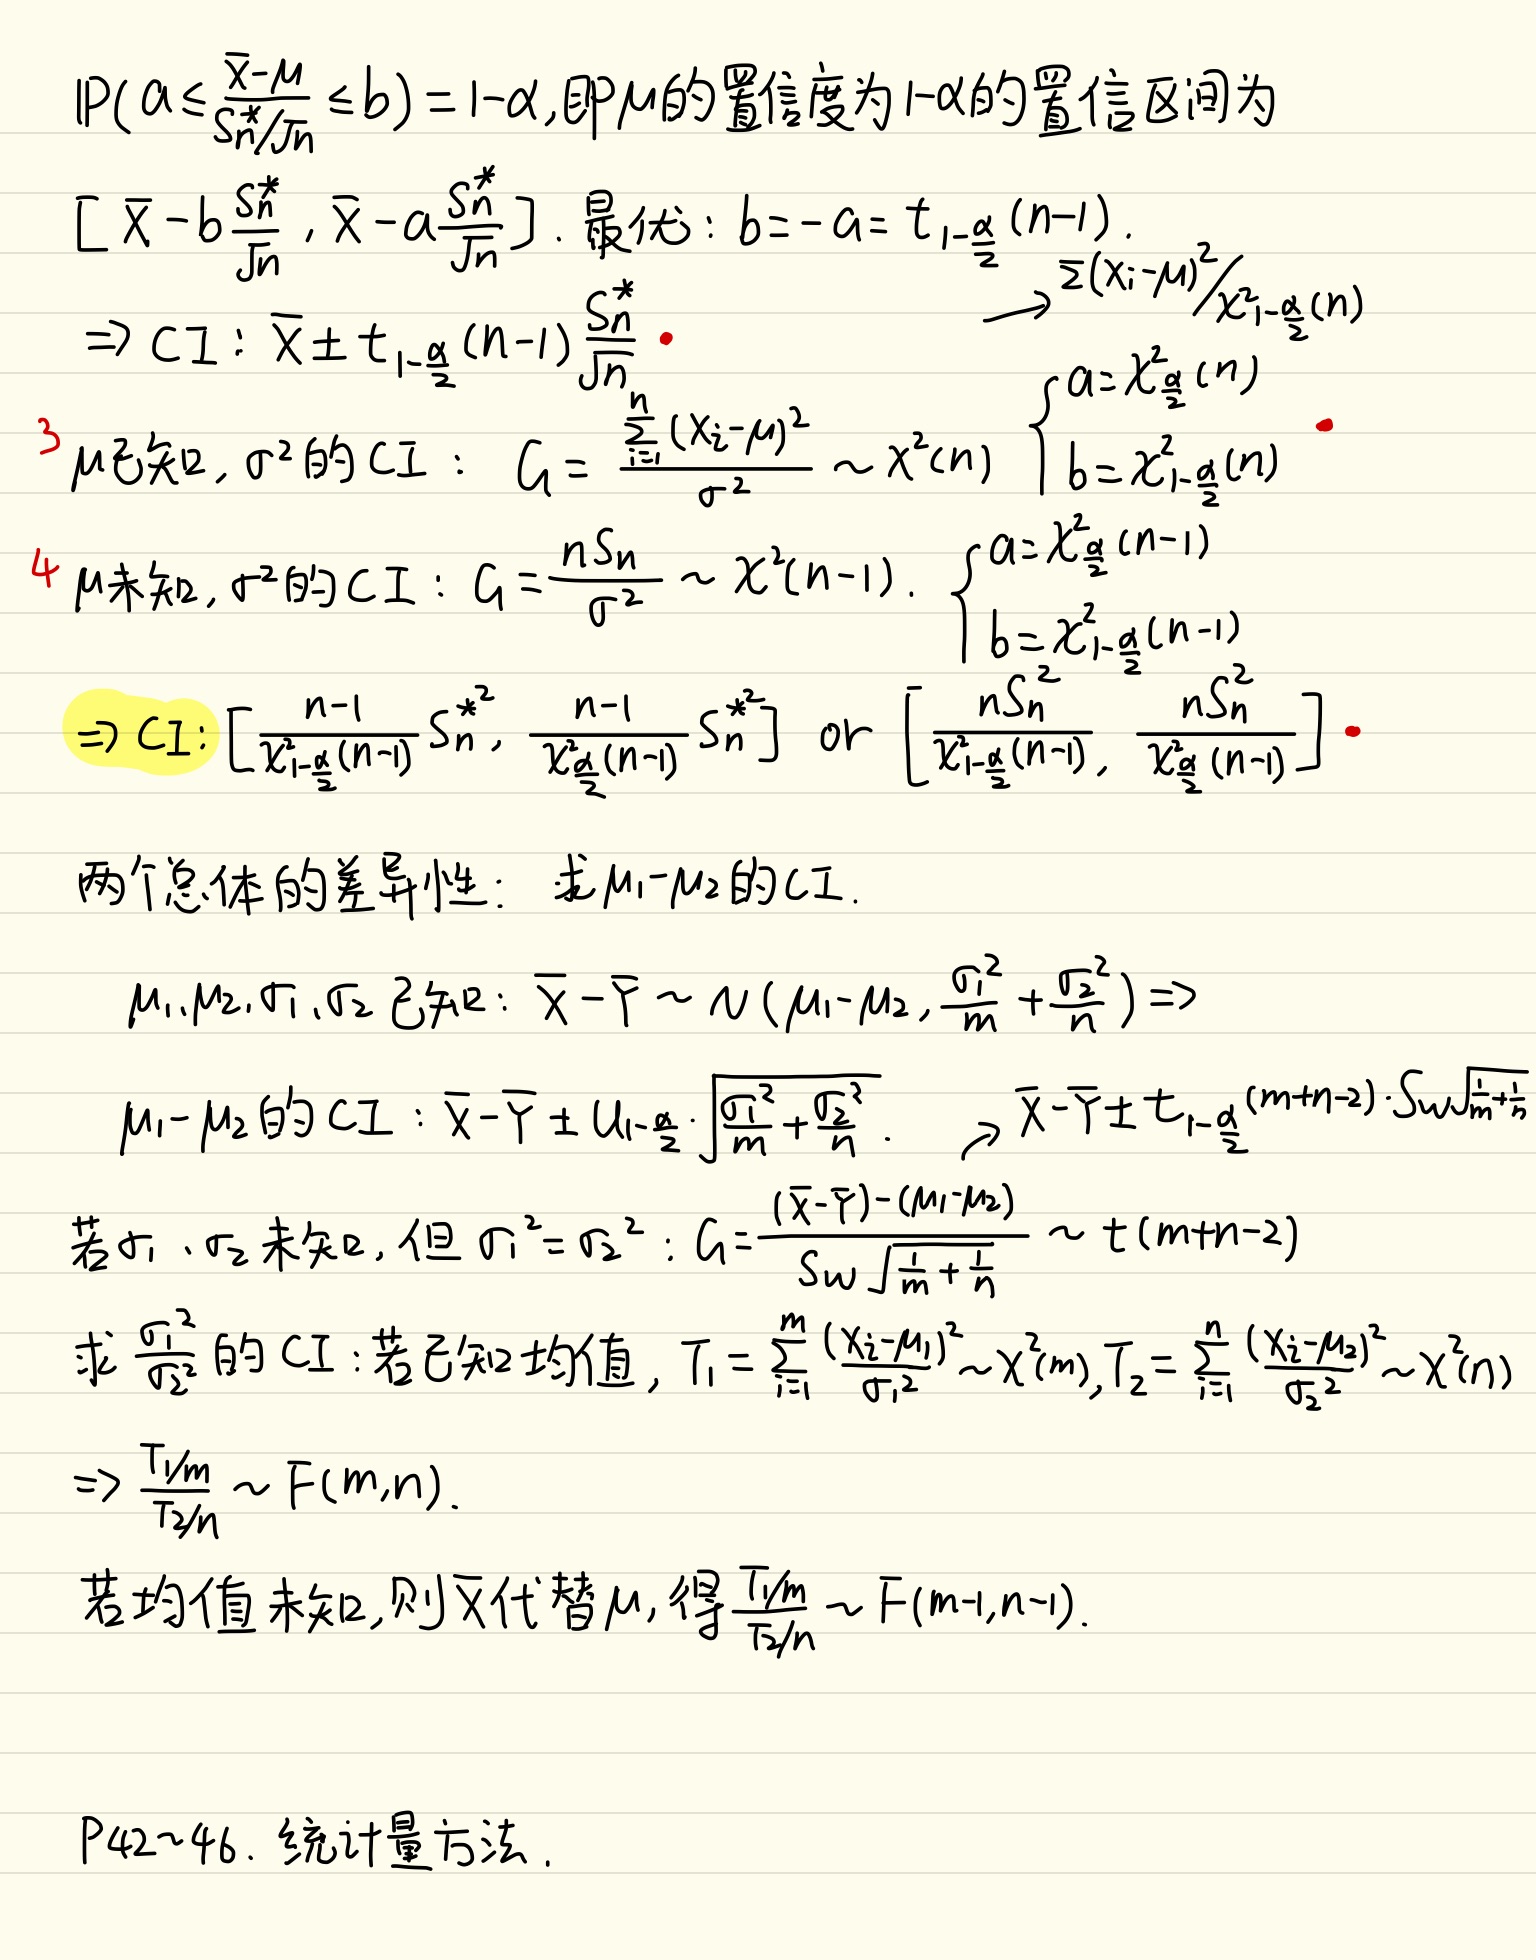 P(a ≤ (X̄-μ)/(Sn*/√n) ≤ b) = 1-α, 即μ的置信度为1-α的置信区间为
[X̄ - b Sn*/√n , X̄ - a Sn*/√n]. 最优: b = -a = t_{1-α/2}(n-1).
⇒ CI: X̄ ± t_{1-α/2}(n-1) Sn*/√n
→ Σ(Xi-μ)²/χ²_{1-α/2}(n)
3 μ已知, σ²的CI: G = Σ_{i=1}^{n}(Xi-μ)²/σ² ~ χ²(n) { a = χ²_{α/2}(n)
b = χ²_{1-α/2}(n)
4 μ未知, σ²的CI: G = nSn/σ² ~ χ²(n-1). { a = χ²_{α/2}(n-1)
b = χ²_{1-α/2}(n-1)
⇒ CI: [(n-1)/χ²_{1-α/2}(n-1) Sn*², (n-1)/χ²_{α/2}(n-1) Sn*²] or [nSn²/χ²_{1-α/2}(n-1), nSn²/χ²_{α/2}(n-1)]
两个总体的差异性: 求μ1-μ2的CI.
μ1、μ2、σ1、σ2已知: X̄-Ȳ ~ N(μ1-μ2, σ1²/m + σ2²/n) ⇒
μ1-μ2的CI: X̄-Ȳ ± U_{1-α/2}·√(σ1²/m + σ2²/n).
↗ X̄-Ȳ ± t_{1-α/2}(m+n-2)·Sw√(1/m+1/n)
若σ1、σ2未知, 但σ1²=σ2²: G = ((X̄-Ȳ)-(μ1-μ2))/(Sw√(1/m+1/n)) ~ t(m+n-2)
求σ1²/σ2²的CI: 若已知均值, T1 = Σ_{i=1}^{m}(Xi-μ1)²/σ1² ~ χ²(m), T2 = Σ_{i=1}^{n}(Xi-μ2)²/σ2² ~ χ²(n)
⇒ (T1/m)/(T2/n) ~ F(m,n).
若均值未知, 则X̄代替μ, 得(T1/m)/(T2/n) ~ F(m-1,n-1).
P42~46. 统计量方法.